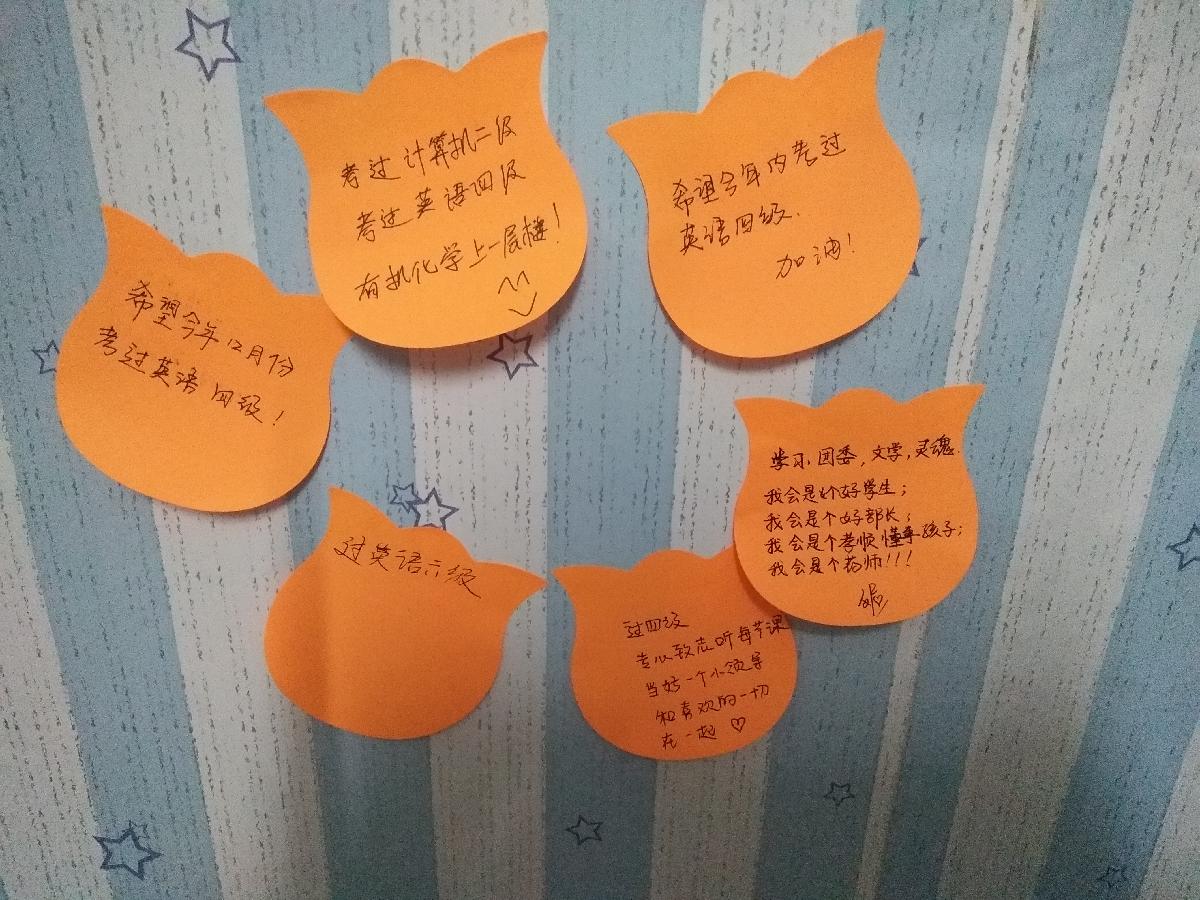 考过计算机二级
考过英语四级
有机化学上一层楼!
希望今年内考过
英语四级.
加油!
希望今年12月份
考过英语四级!
学习,团委,文学,灵魂.
我会是个好学生;
我会是个好部长;
我会是个孝顺懂事孩子;
我会是个药师!!!
过英语六级
过四级
专心致志听每节课
当好一个小领导
和喜欢的一切
在一起 ♡